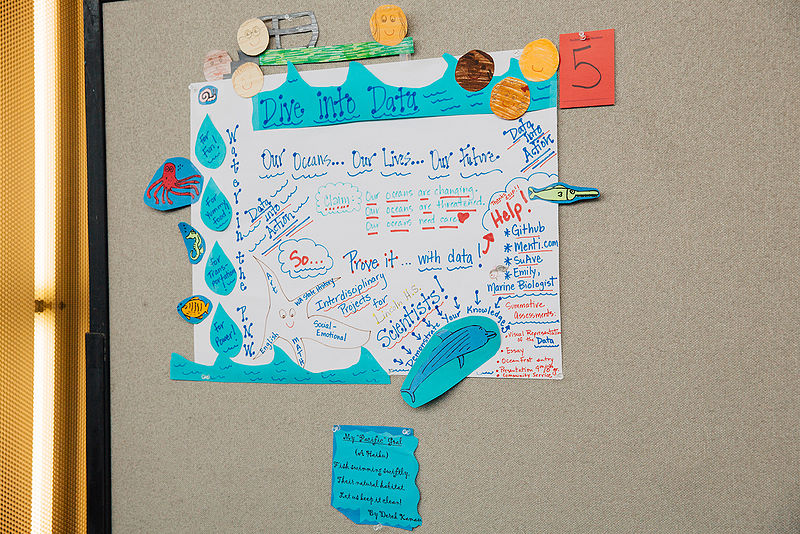 5
Dive into Data
Data
Into
Action
Our Oceans... Our Lives... Our Future.
Water in the P.N.W.
For
Fun!
For
Yummy
Food!
For
Trans-
portation
For
Power!
Data
Into
Action
Claim:
Our oceans are changing.
Our oceans are threatened.
Our oceans need care
So...
Prove it... with data!
Help!
*Github
*Menti.com
*SuAve
*Emily,
Marine Biologist
Art
WA State History
Social-
Emotional
MATH
English
Interdisciplinary
Projects for
Lincoln H.S.
Scientists!
Demonstrate Your Knowledge
Summative
Assessments:
• Visual Representation
of the Data
• Essay
• Ocean Fest entry
• Presentation 4th/8th gr.
• Community Service
My "Pacific" Goal
(A Haiku)
Fish swimming swiftly,
Their natural habitat
Let us keep it clean!
By Derek